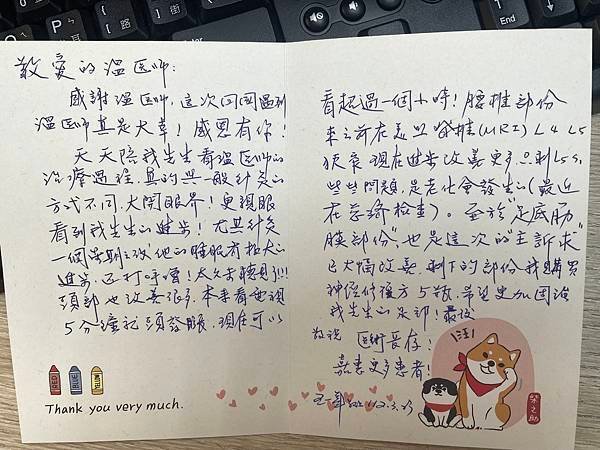 敬愛的溫医师:
感謝溫医师, 这次回國遇到
溫医师真是大幸! 感恩有你!
天天陪我先生看溫医师的
治療過程, 真的與一般針灸的
方式不同, 大開眼界! 更親眼
看到我先生的進步! 尤其針灸
一個星期後, 他的睡眠有极大的
進步, 还打呼嚕! 太久未聽見了!!!
頭部也改善很多, 本來看電視
5分鐘就頭發脹, 現在可以
看超過一個小時! 腰椎部份
來之前在美照脊椎(MRI) L4 L5
現在進步改善更多, 只剩L5S1
些些問題, 是老化會發生的(最近
在檢查)。至於"足底筋
膜部份", 也是這次的"主訴求"
已大幅改善, 剩下的部份我購買
修復方5瓶, 希望更加固治
我先生的足部! 最後
敬祝 医術長存!
嘉惠更多患者!
112.3.23
Thank you very much.
汪!
柴之助
End